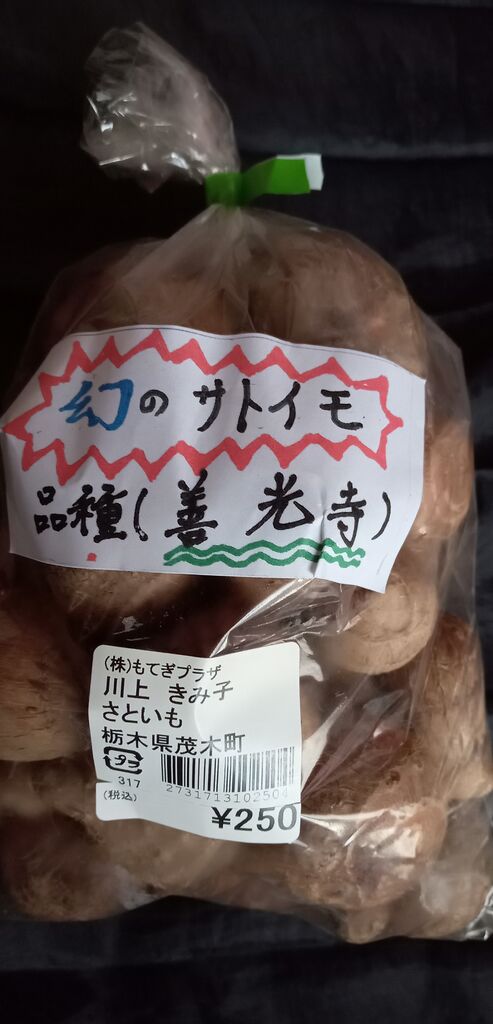 幻のサトイモ
品種(善光寺)
(株)もてぎプラザ
川上 きみ子
さといも
栃木県茂木町
プラ
317
2731713102504
(税込)
¥250